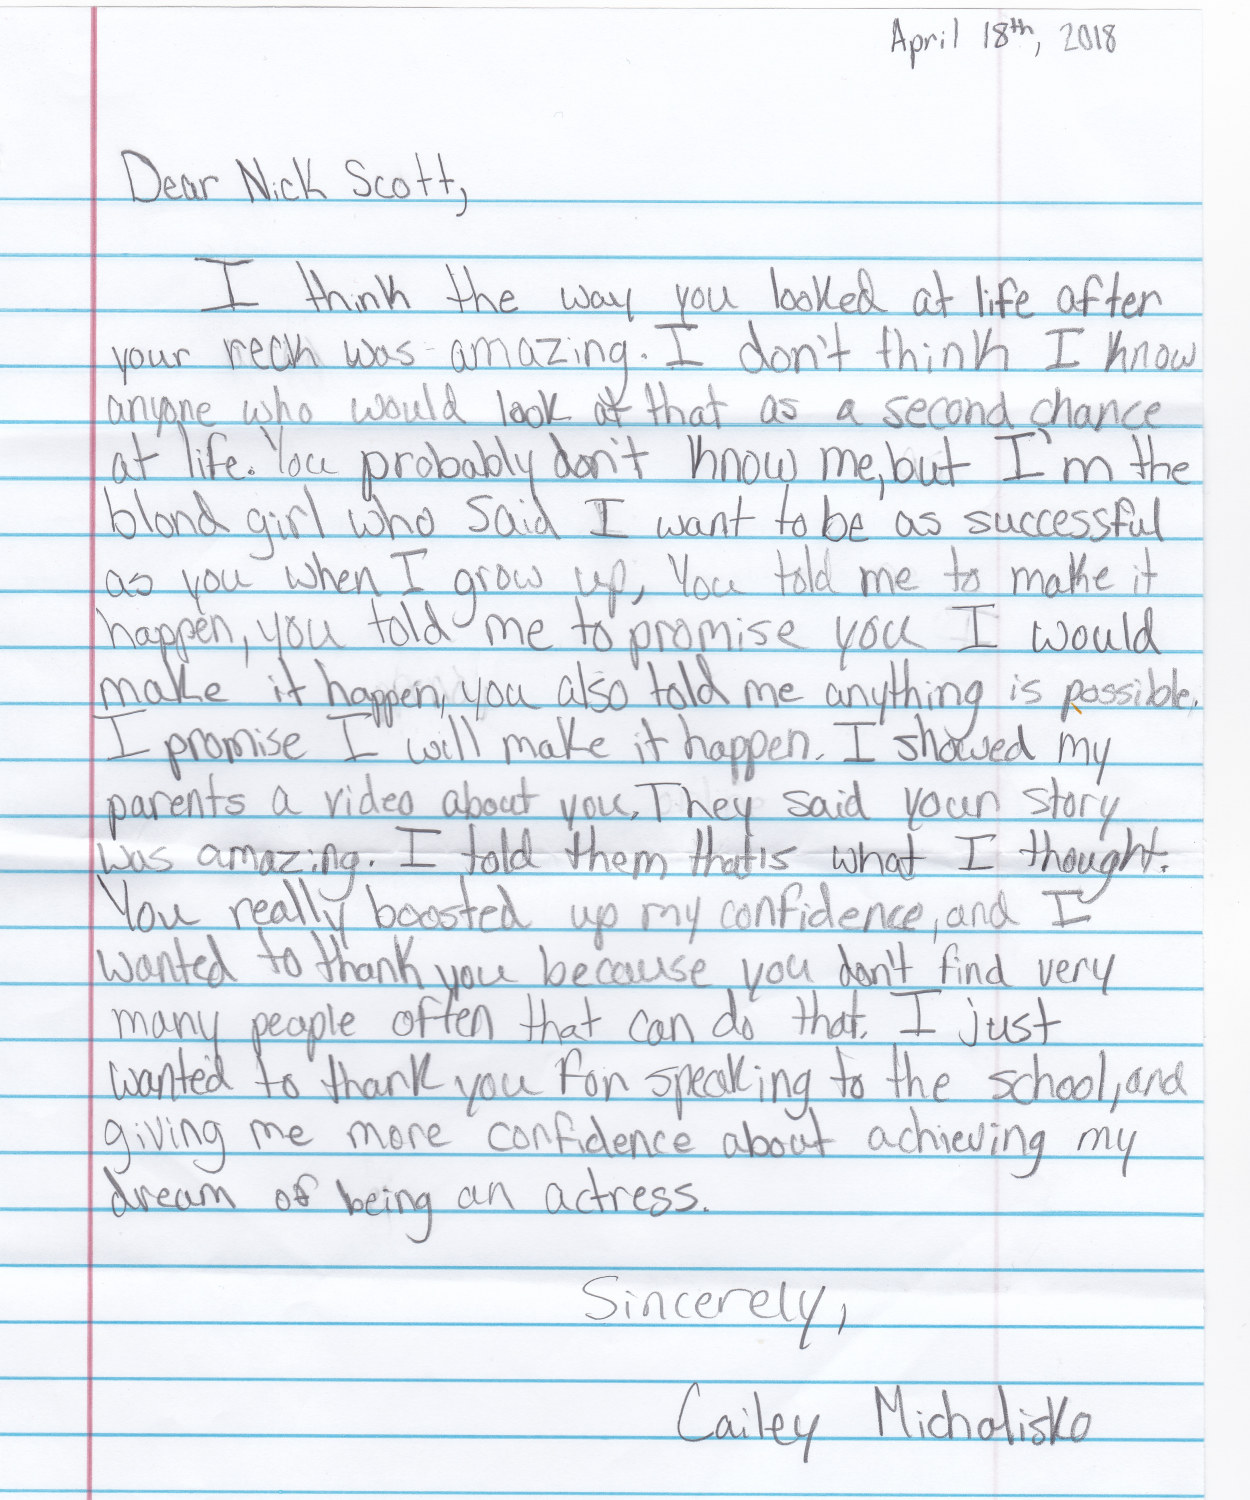 April 18th, 2018
Dear Nick Scott,
I think the way you looked at life after
your reck was amazing. I don't think I know
anyone who would look at that as a second chance
at life. You probably don't know me, but I'm the
blond girl who said I want to be as successful
as you when I grow up, You told me to make it
happen, you told me to promise you I would
make it happen, you also told me anything is possible.
I promise I will make it happen. I showed my
parents a video about you. They said your story
was amazing. I told them thatis what I thought.
You really boosted up my confidence, and I
wanted to thank you because you don't find very
many people often that can do that. I just
wanted to thank you for speaking to the school, and
giving me more confidence about achieving my
dream of being an actress.
Sincerely,
Cailey Michalisko